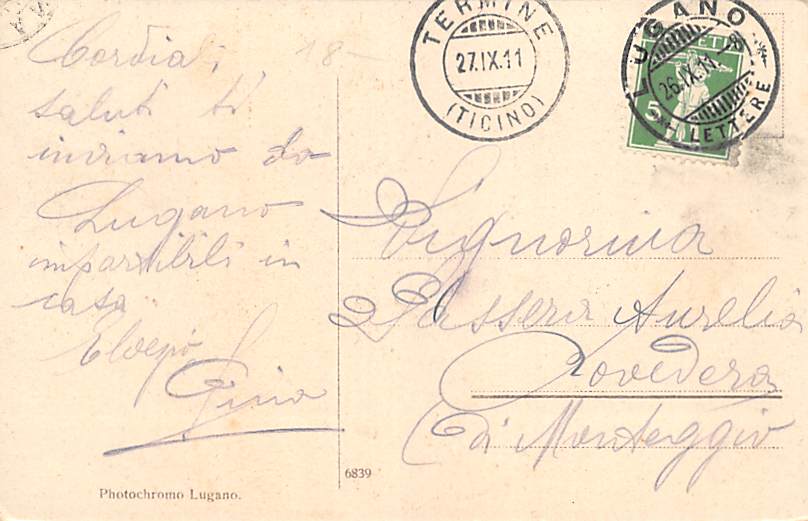 Cordiali
saluti ti
inviamo da
Lugano
impartibili in
casa
Gina
18-
TERMINE
27.IX.11
(TICINO)
LUGANO
26.IX.11
LETTERE
HELVETIA
5
Signorina
Passera Aurelia
Rovedera
di Monteggio
6839
Photochromo Lugano.